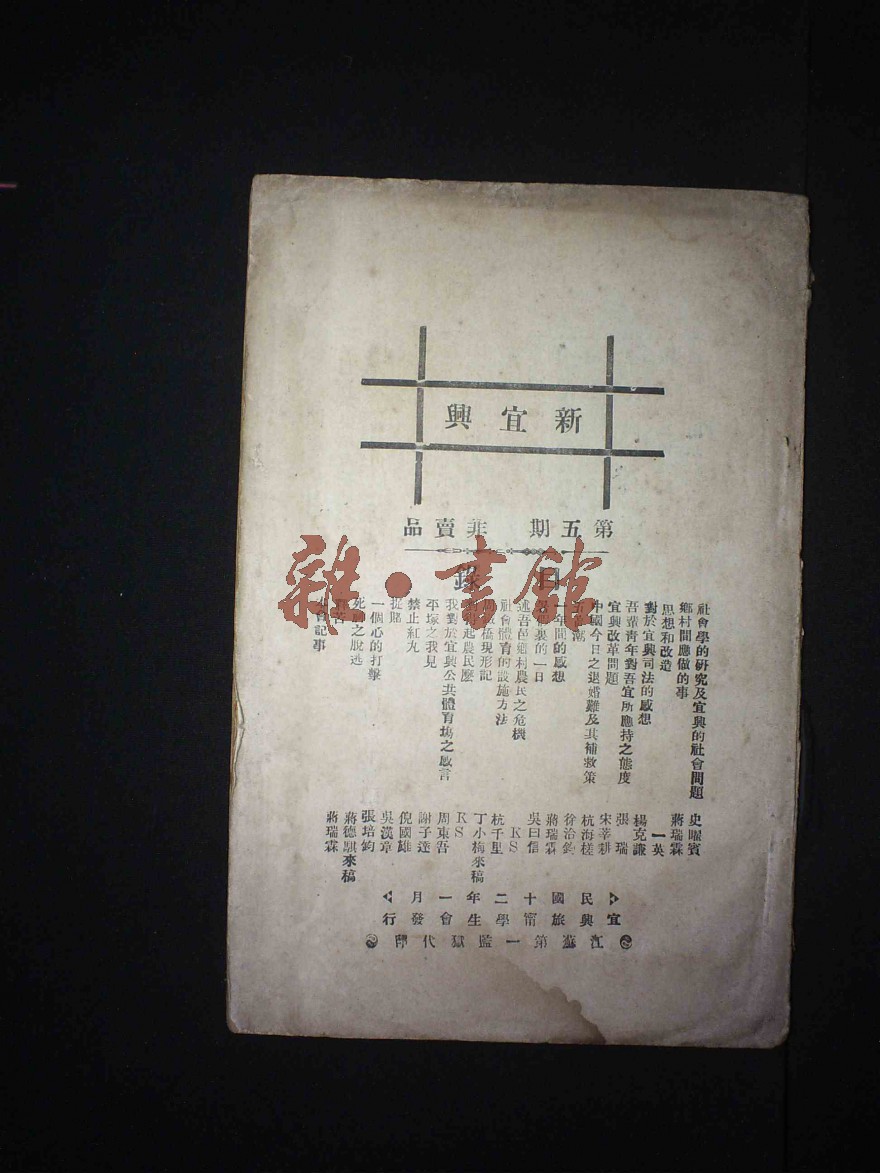 新宜興
第五期 非賣品
目錄
社會學的研究及宜興的社會問題 史曜賓
鄉村間應做的事 蔣瑞霖
思想和改造 一英
對於宜興司法的感想 楊克謙
吾輩靑年對吾宜所應持之態度 張瑞
宜興改革問題 宋莘耕
中國今日之退婚難及其補救策 杭海槎
潮 徐治鈞
一年間的感想 蔣瑞霖
裏的一日 吳曰信
述吾邑鄉村農民之危機 KS
社會體育的設施方法 杭千里
橋現形記 丁小梅來稿
起農民麼 KS
我對於宜興公共體育塲之感言 周東吾
平塚之我見 謝子達
禁止紅丸 倪國雄
捉賭 吳漢章
一個心的打擊 張培鈞
死前之脫逃 蔣德騏來稿
會記事 蔣瑞霖
民國十二年一月
宜興旅甯學生會發行
江蘇第一監獄代印
雜·書館